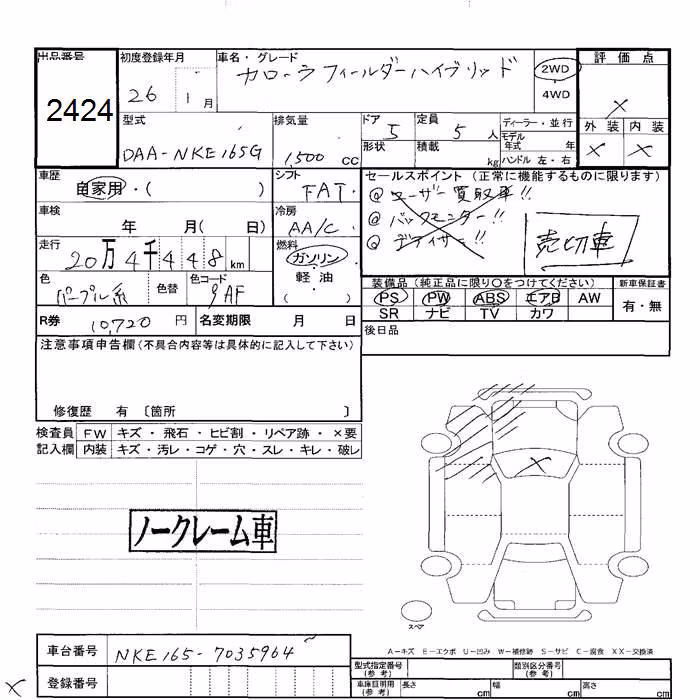 出品番号 初度登録年月 車名・グレード 評価点
2424 26 1月 カローラフィールダーハイブリッド 2WD ×
4WD
型式 排気量 ドア 定員 ディーラー・並行 外装 内装
5 5人 モデル年式 年 × ×
DAA-NKE165G 1,500cc 形状 積載 kg ハンドル 左・右
車歴 シフト セールスポイント(正常に機能するものに限ります)
自家用・( ) FAT @ユーザー買取車!!
車検 冷房 @バックモニター!!
年 月( 日) AA/C @ 売切車
走行 燃料
20万4千448km ガソリン
軽油
( )
色 色替 色コード 装備品(純正品に限り○をつけてください) 新車保証書
パープル系 9AF PS PW ABS エアB AW 有・無
SR ナビ TV カワ
R券 10,720円 名変期限 月 日 後日品
注意事項申告欄(不具合内容等は具体的に記入して下さい)
修復歴 有 〔箇所 〕
検査員 FW キズ・飛石・ヒビ割・リペア跡・×要
記入欄 内装 キズ・汚レ・コゲ・穴・スレ・キレ・破レ
×
ノークレーム車
スペア
A-キズ E-エクボ U-凹み W-補修跡 S-サビ C-腐食 XX-交換済
車台番号 NKE165-7035964 型式指定番号(参考) 類別区分番号(参考)
× 登録番号 車庫証明用(参考) 長さ cm 幅 cm 高さ cm